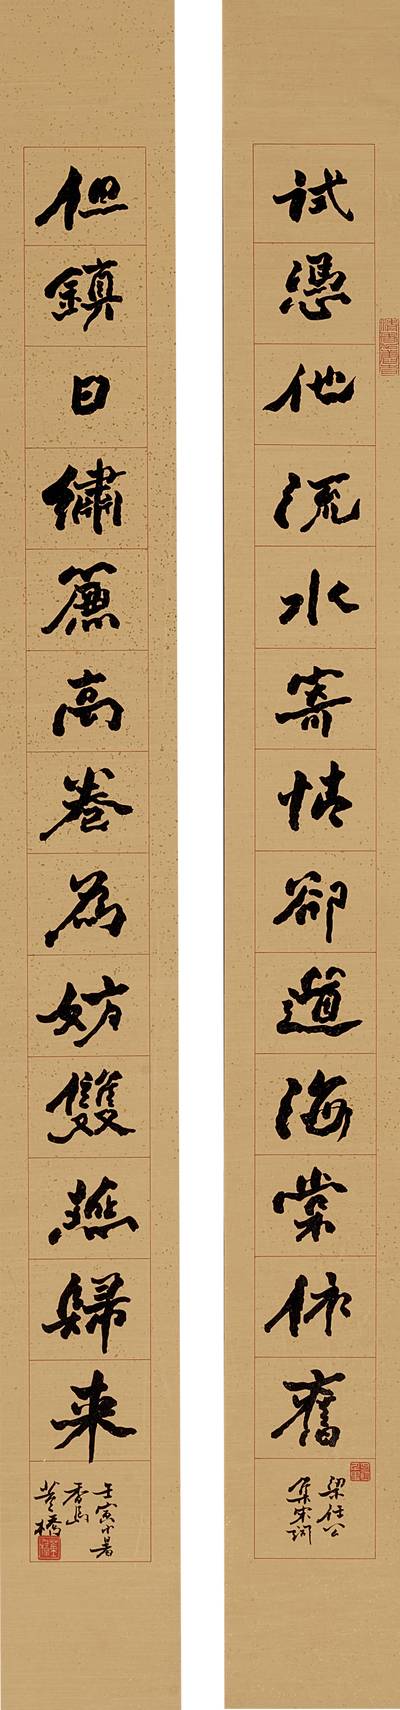 試憑他流水寄情卻道海棠依舊
梁任公
集宋詞
但鎮日繡簾高卷為妨雙燕歸來
壬寅小暑
香島
董橋